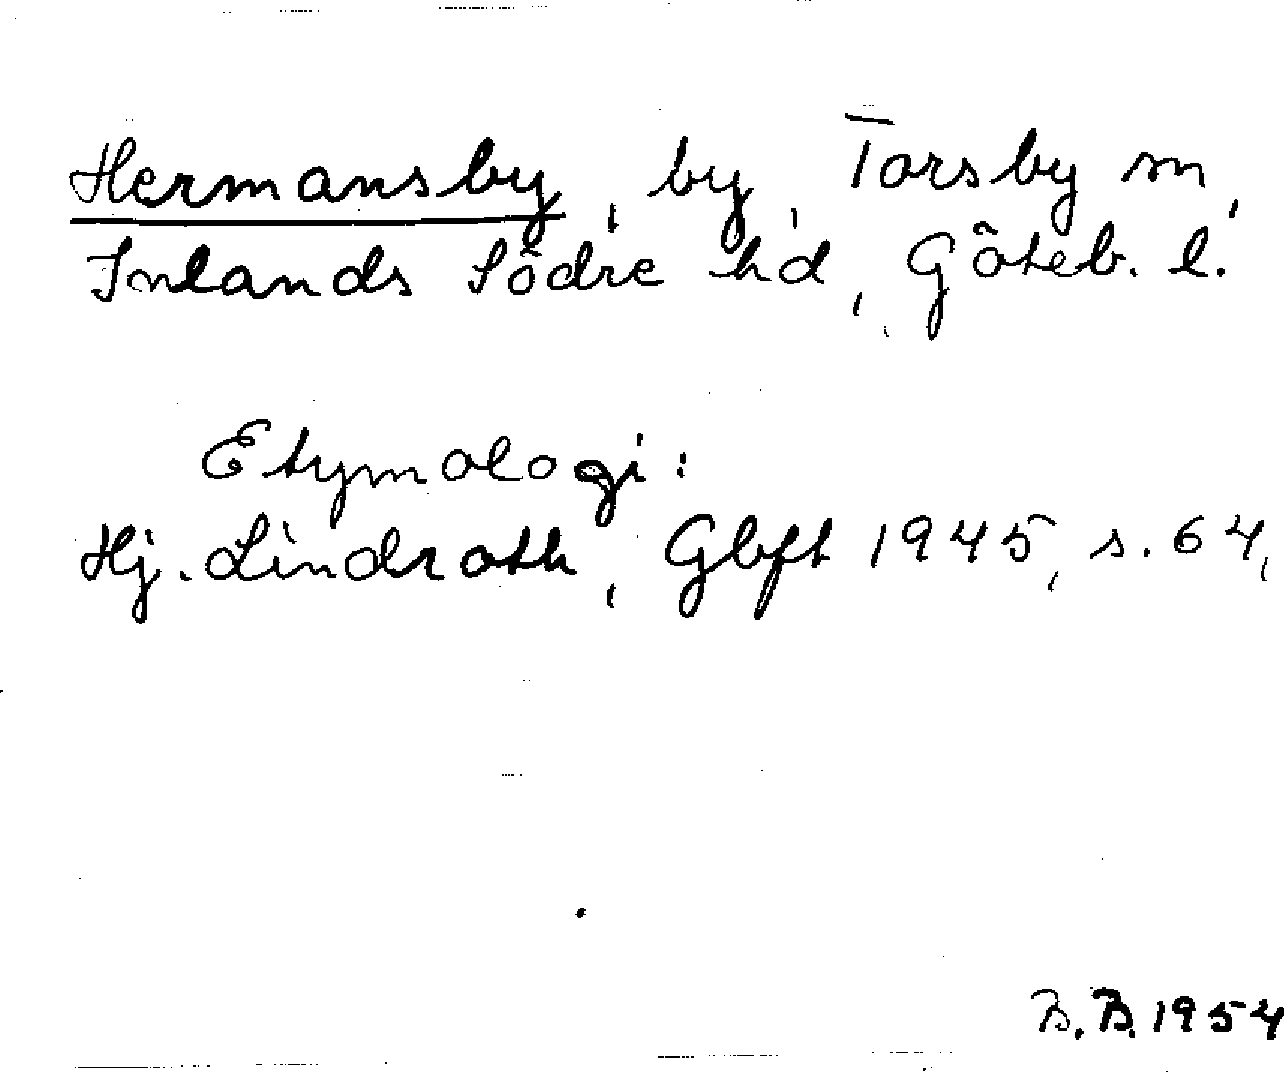 Hermansby, by, Torsby sn,
Inlands Södre hd, Göteb. l.
Etymologi:
Hj. Lindroth, Gbft 1945, s. 64,
B.B. 1954